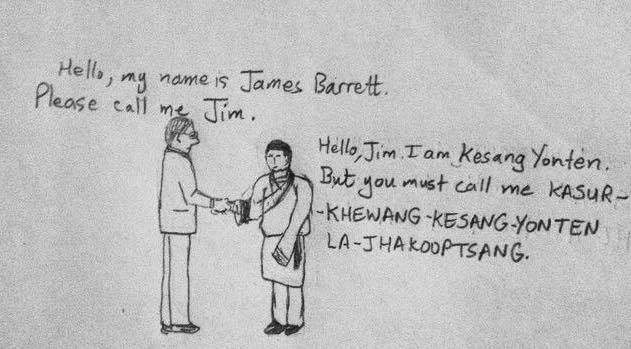 Hello, my name is James Barrett.
Please call me Jim.
Hello, Jim. I am Kesang Yonten.
But you must call me KASUR-
-KHEWANG-KESANG-YONTEN
LA-JHAKOOPTSANG.